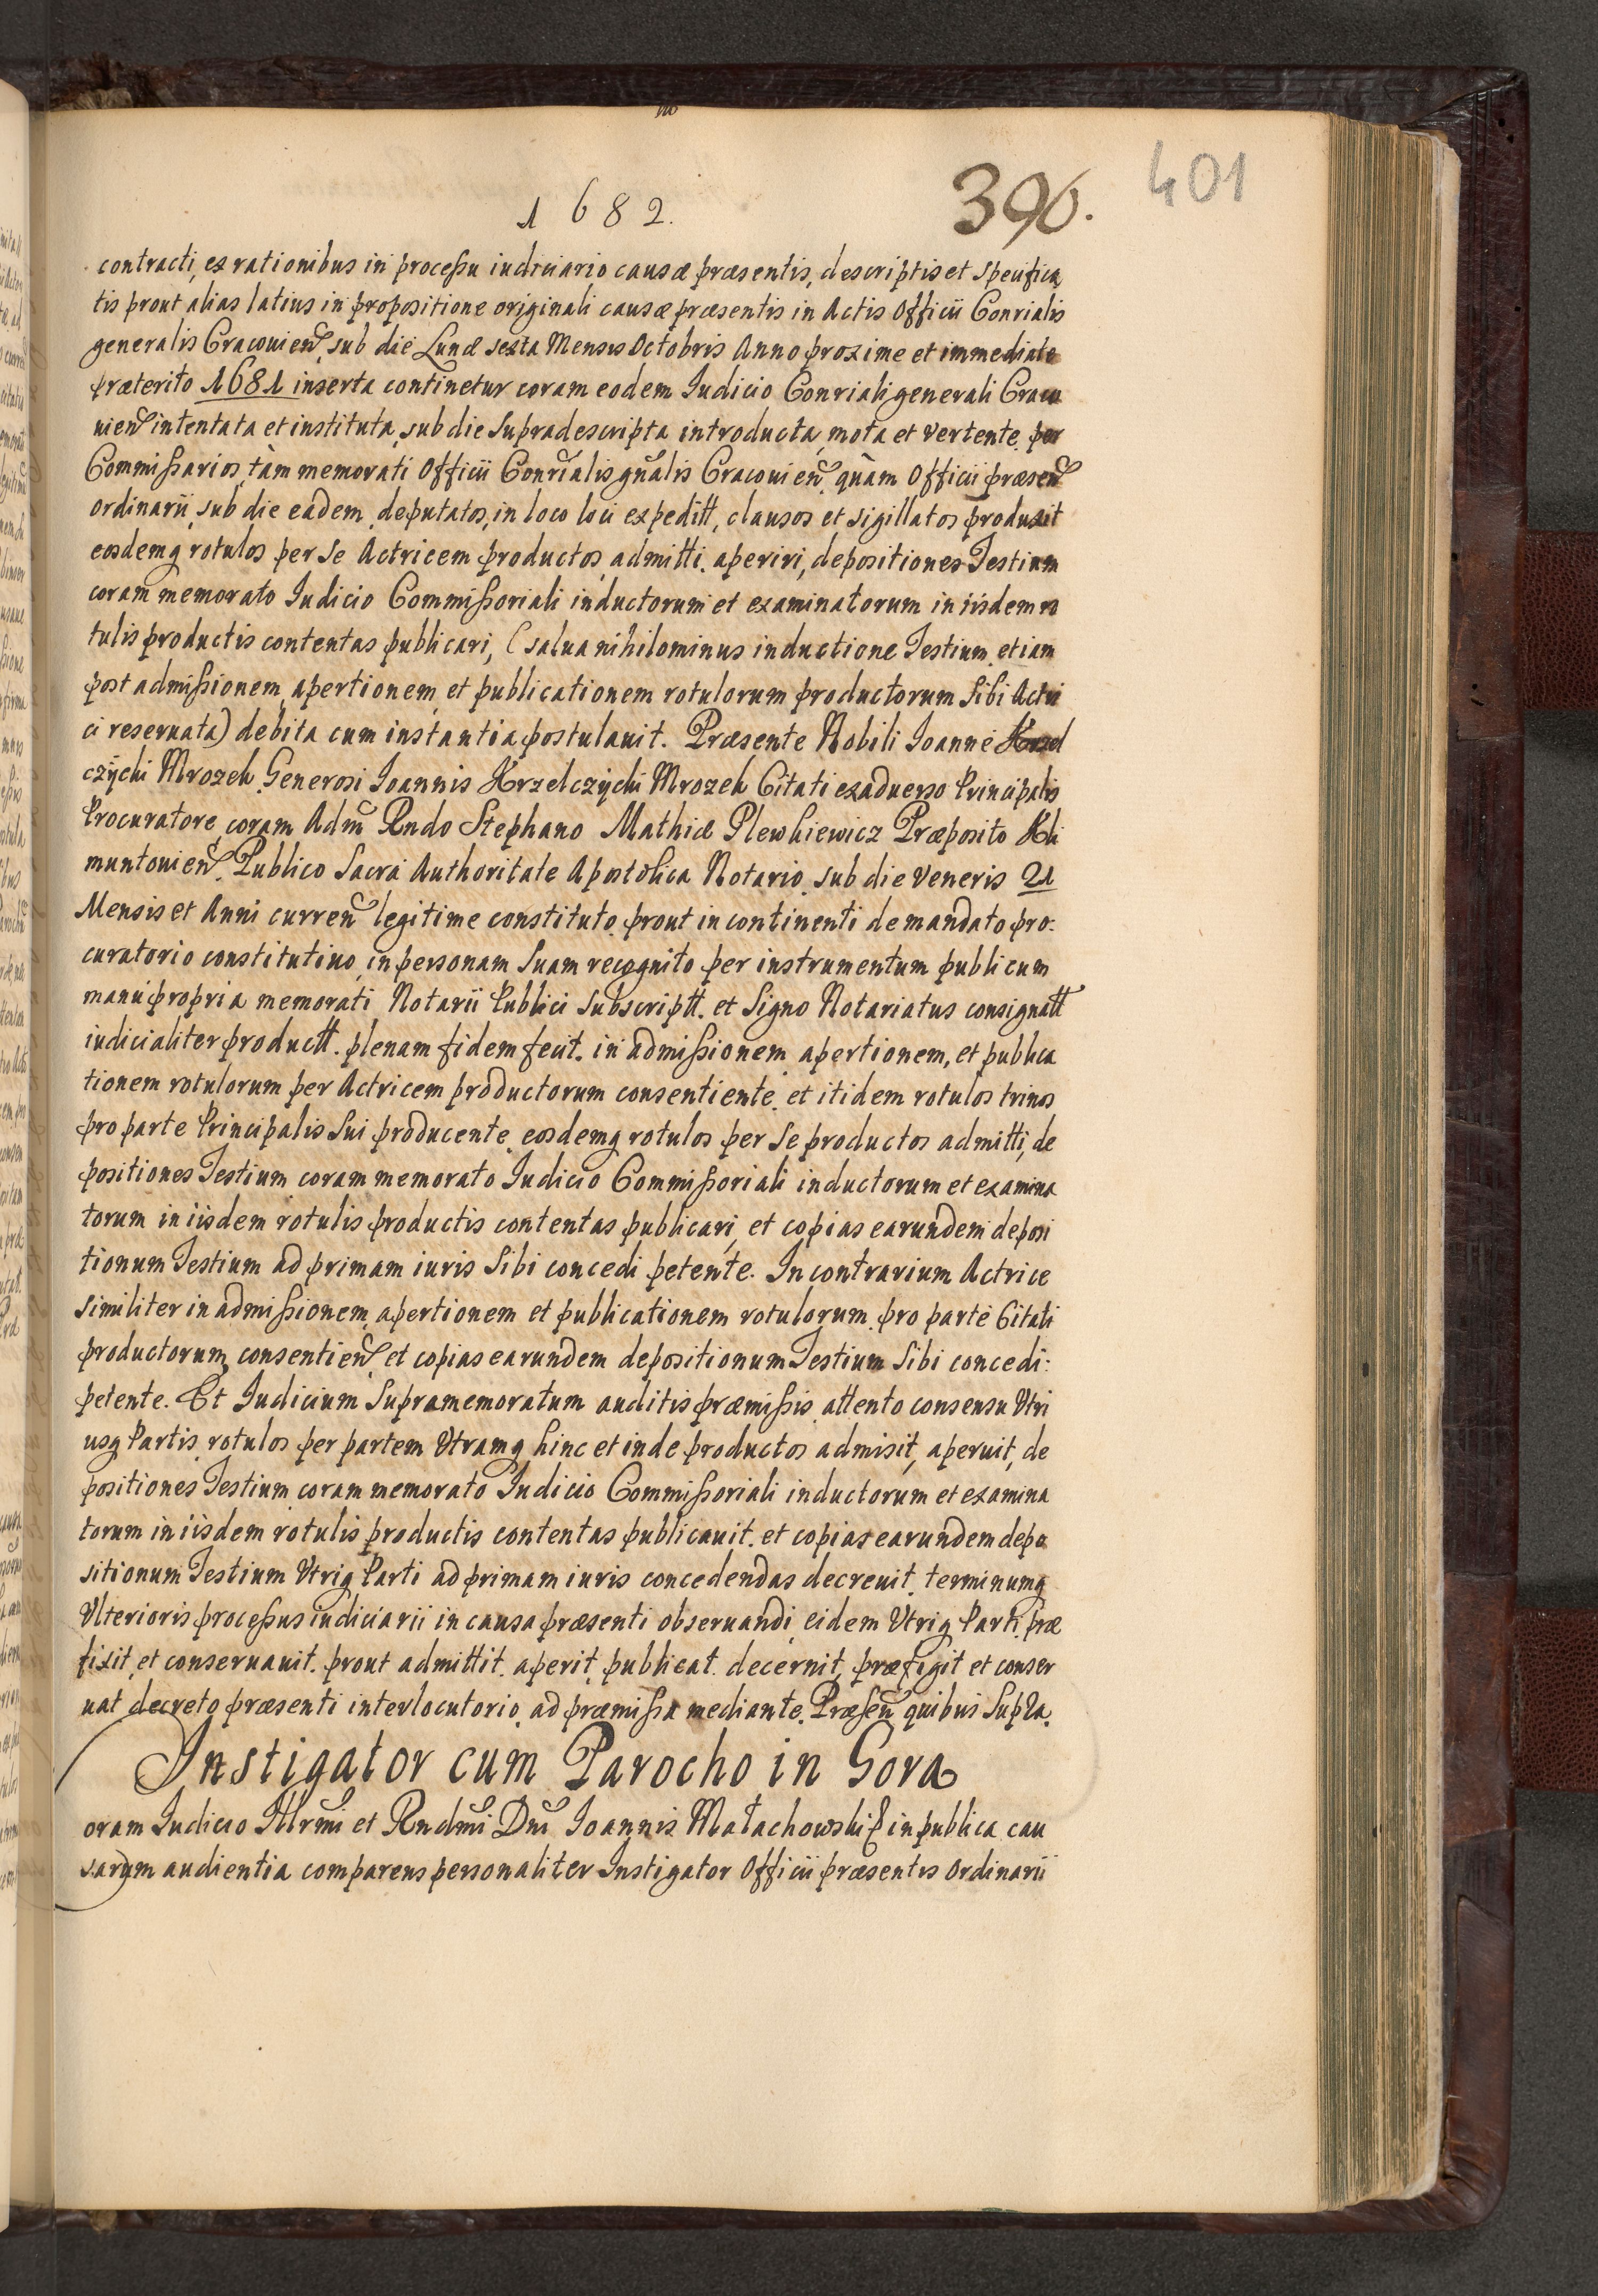 1682.
396.
401
contracti, ex rationibus in processu iudiciario causæ præsentis, descriptis et specifica
tis prout alias latius in propositione originali causæ præsentis in Actis Officii Conrialis
generalis Cracouien̄, sub die Lunæ sexta Mensis Octobris Anno proxime et immediate
præterito 1681 inserta continetur coram eodem Iudicio Conriali generali Craco
uien̄ intentata et instituta, sub die supradescripta introducta, mota et vertente, per
Commissarios, tàm memorati Officii Conrialis gn̄alis Cracouien̄. quàm Officii præsen̄
Ordinarii, sub die eadem deputatos, in loco loci expeditt, clausos et sigillatos produxit
eosdemq rotulos per se Actricem productos admitti. aperiri, depositiones Testium
coram memorato Iudicio Commissoriali inductorum et examinatorum in iisdem ro
tulis productis contentas publicari, (salua nihilominus inductione Testium etiam
post admissionem, apertionem et publicationem rotulorum productorum sibi Actri
ci reseruata) debita cum instantia postulauit. Præsente Nobili Ioanne Krzel
czycki Mrozek Generosi Ioannis Krzelczycki Mrozek Citati exaduerso Principalis
Procuratore, coram Adm̄ Rndo Stephano Mathiæ Plewkiewicz Præposito Kli
muntouien̄. Publico Sacra Authoritate Apostolica Notario, sub die Veneris 21
Mensis et Anni curren̄ legitime constituto, prout in continenti de mandato pro:
curatorio constitutiuo, in personam suam recognito per instrumentum publicum
manu propria memorati Notarii Publici subscriptt. et Signo Notariatus consignatt
iudicialiter productt. plenam fidem fecit. in admissionem apertionem, et publica
tionem rotulorum per Actricem productorum consentiente. et itidem rotulos trinos
pro parte Principalis sui producente, eosdemq rotulos per se productos admitti, de
positiones Testium coram memorato Iudicio Commissoriali inductorum et examina
torum in iisdem rotulis productis contentas publicari, et copias earundem deposi
tionum Testium ad primam iuris sibi concedi petente. In contrarium Actrice
similiter in admissionem, apertionem et publicationem rotulorum pro parte Citati
productorum consentien̄ et copias earundem depositionum Testium sibi concedi:
petente. Et Iudicium supramemoratum auditis præmissis, attento consensu Vtri
usq Partis, rotulos per partem Vtramq hinc et inde productos admisit, aperuit, de
positiones Testium coram memorato Iudicio Commissoriali inductorum et examina
torum in iisdem rotulis productis contentas publicauit. et copias earundem depo
sitionum Testium Vtriq Parti ad primam iuris concedendas decreuit, terminumq
Vlterioris processus iudiciarii in causa præsenti obseruandi, eidem Vtriq Parti præ
fixit, et conseruauit. prout admittit. aperit, publicat. decernit, præfigit et conser
uat decreto præsenti interlocutorio ad præmissa mediante. Præsen̄ quibus supra.
Instigator cum Parocho in Gora
Coram Iudicio Illrmi et Rndmi Dni Ioannis Małachowski in publica cau
sarum audientia comparens personaliter Instigator Officii præsentis Ordinarii